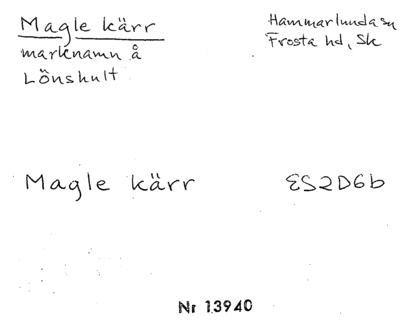 Magle kärr
marknamn å
Lönshult
Hammarlunda sn
Frosta hd, Sk
Magle kärr ES2D6b
Nr 13940